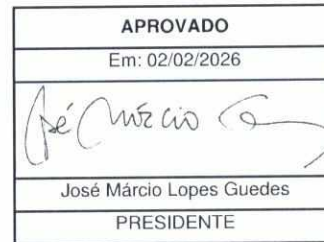 APROVADO
Em: 02/02/2026
José Márcio
José Márcio Lopes Guedes
PRESIDENTE